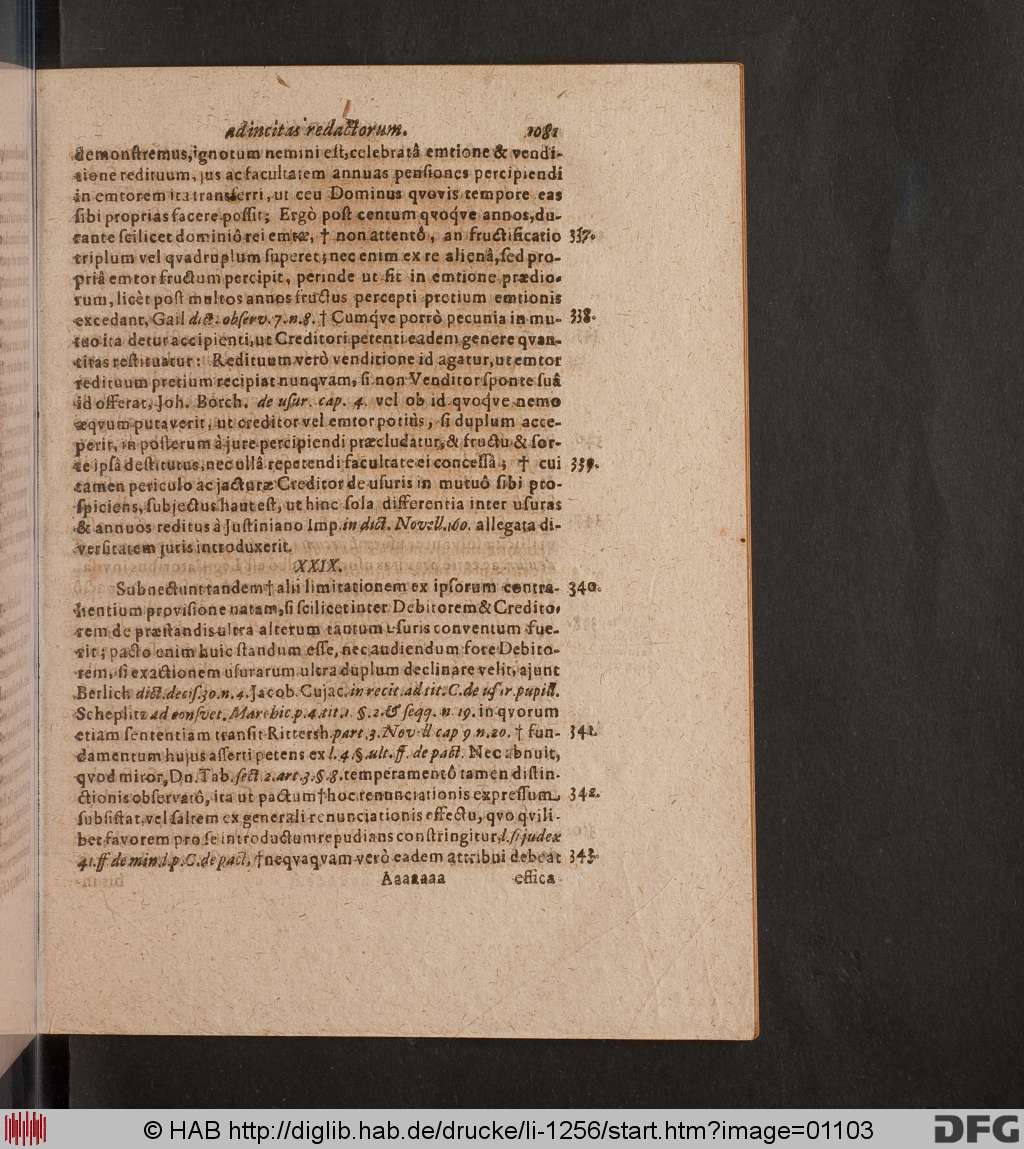 ad incitas redactorum. 1081
demonſtremus, ignotum nemini eſt, celebratâ emtione & vendi-
tione redituum, jus ac facultatem annuas penſiones percipiendi
in emtorem ita transferri, ut ceu Dominus qvovis tempore eas
ſibi proprias facere poſſit; Ergò poſt centum qvoqve annos, du-
rante ſcilicet dominiô rei emtæ, † non attentô, an fructificatio 337.
triplum vel qvadruplum ſuperet; nec enim ex re alienâ, ſed pro-
priâ emtor fructum percipit, perinde ut fit in emtione prædio-
rum, licèt poſt multos annos fructus percepti pretium emtionis
excedant, Gail dict. obſerv. 7. n. 8. † Cumqve porrò pecunia in mu- 338.
tuo ita detur accipienti, ut Creditori petenti eadem genere qvan-
titas reſtituatur: Redituum verò venditione id agatur, ut emtor
redituum pretium recipiat nunqvam, ſi non Venditor ſponte ſuâ
id offerat, Joh. Borch. de uſur. cap. 4. vel ob id qvoqve nemo
æqvum putaverit, ut creditor vel emtor potiùs, ſi duplum acce-
perit, in poſterum à jure percipiendi præcludatur, & fructu & ſor-
te ipſâ deſtitutus, nec ullâ repetendi facultate ei conceſſâ; † cui 339.
tamen periculo ac jacturæ Creditor de uſuris in mutuô ſibi pro-
ſpiciens, ſubjectus haut eſt, ut hinc ſola differentia inter uſuras
& annuos reditus à Juſtiniano Imp. in dict. Novell. 160. allegata di-
verſitatem juris introduxerit.
XXIX.
Subnectunt tandem † alii limitationem ex ipſorum contra- 340.
hentium proviſione natam, ſi ſcilicet inter Debitorem & Credito-
rem de præſtandis ultra alterum tantum uſuris conventum fue-
rit; pacto enim huic ſtandum eſſe, nec audiendum fore Debito-
rem, ſi exactionem uſurarum ultra duplum declinare velit, ajunt
Berlich dict. deciſ. 30. n. 4. Jacob. Cujac. in recit. ad tit. C. de uſur. pupill.
Scheplitz ad conſvet. Marchic. p. 4. tit. 1. §. 2. & ſeqq. n. 19. in qvorum
etiam ſententiam tranſit Rittersh. part. 3. Novell cap 9 n. 20. † fun- 341.
damentum hujus aſſerti petens ex l. 4. §. ult. ff. de pact. Nec abnuit,
qvod miror, Dn. Tab. ſect. 2. art. 3. §. 8. temperamentô tamen diſtin-
ctionis obſervatô, ita ut pactum † hoc renunciationis expreſſum 342.
ſubſiſtat, vel ſaltem ex generali renunciationis effectu, qvo qvili-
bet favorem pro ſe introductum repudians conſtringitur, l. ſi judex
41. ff de min. l. p. C. de pact, † neqvaqvam verò eadem attribui debeat 343.
Aaaaaaa effica
© HAB http://diglib.hab.de/drucke/li-1256/start.htm?image=01103 DFG